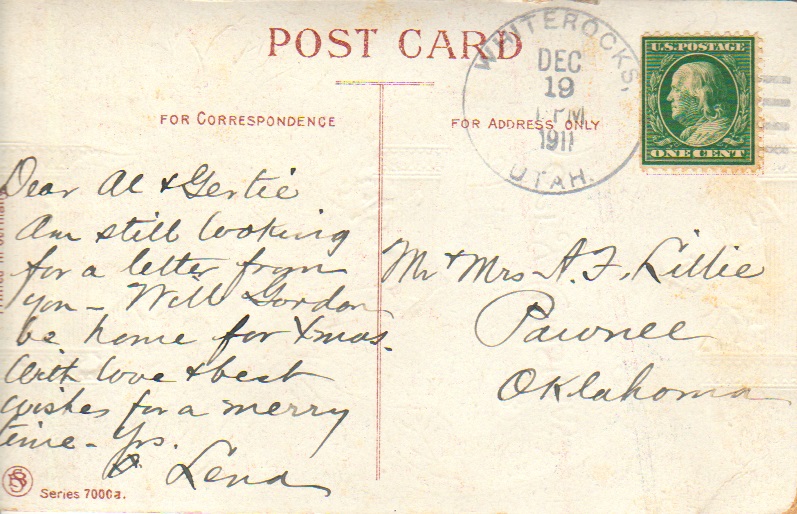 POST CARD
FOR CORRESPONDENCE
FOR ADDRESS ONLY
WHITEROCKS,
DEC
19
PM
1911
UTAH.
U.S. POSTAGE
ONE CENT
Dear Al & Gertie
Am still looking
for a letter from
you - Will Gordon
be home for Xmas.
With love & best
wishes for a merry
time - Yrs.
Lena
Mr & Mrs A. F. Lillie
Pawnee
Oklahoma
Series 7000a.